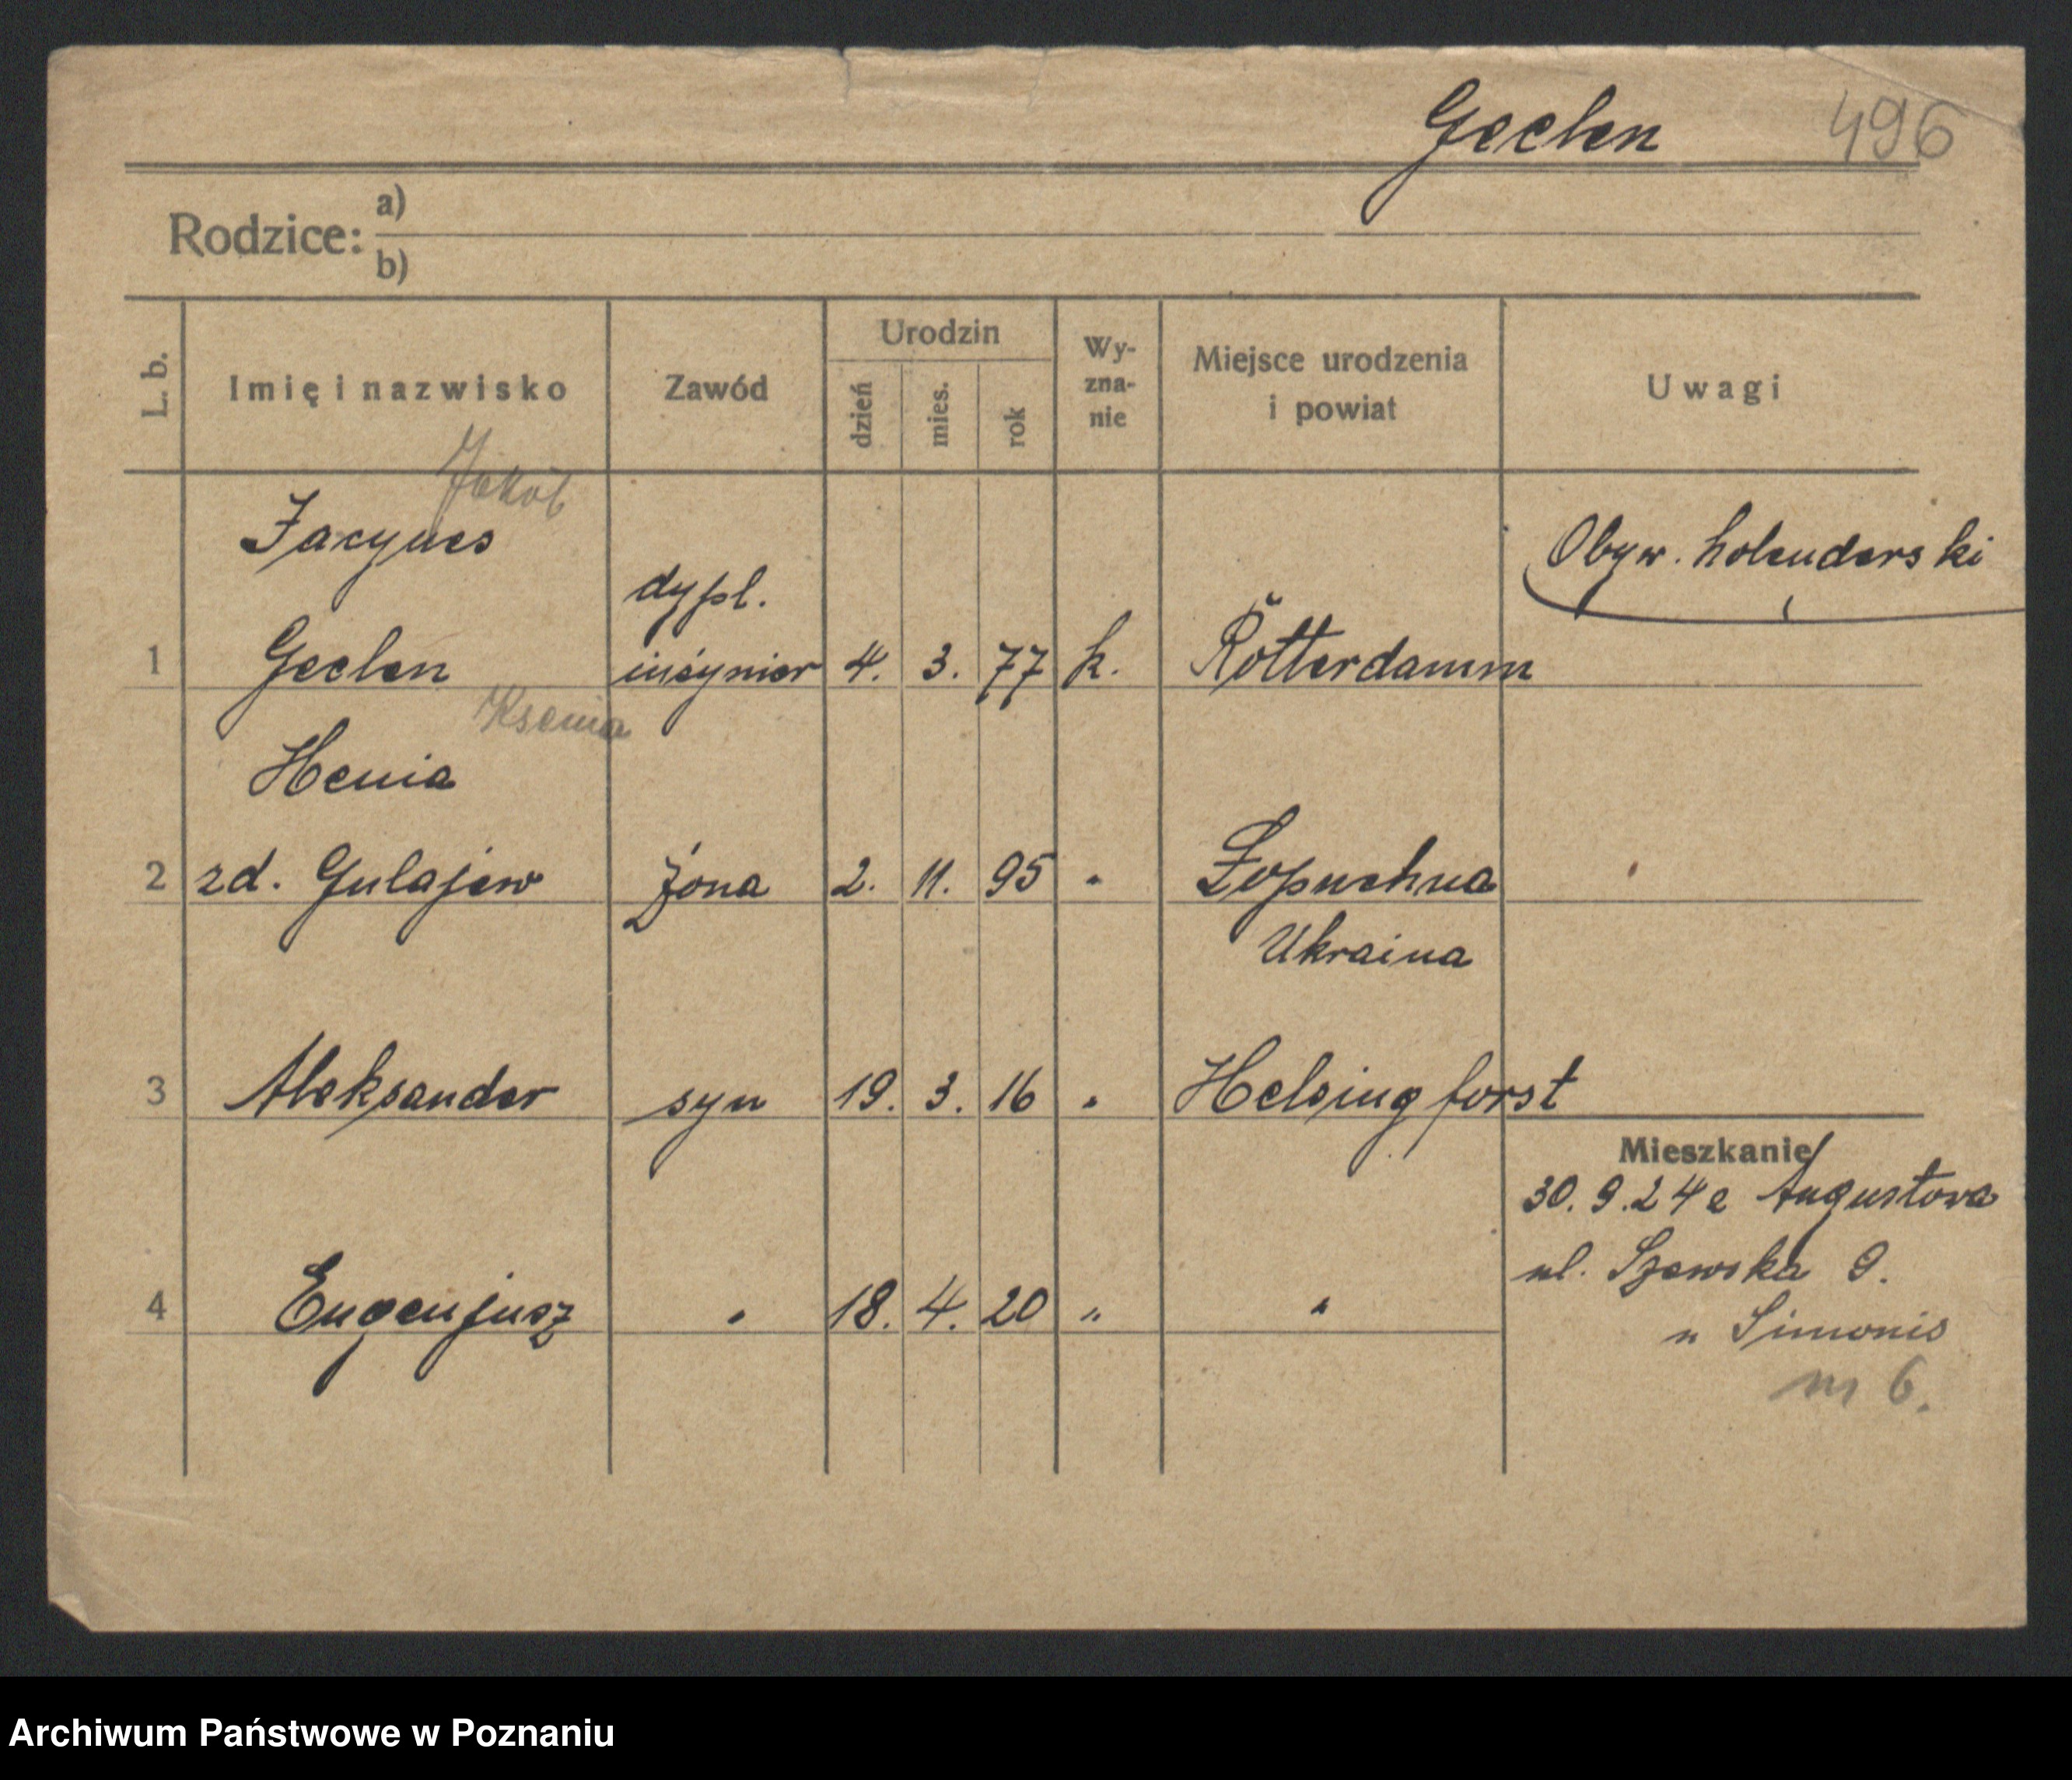 Geelen 496
Rodzice: a)
b)
L. b. Imię i nazwisko Zawód Urodzin dzień mies. rok Wy-zna-nie Miejsce urodzenia i powiat Uwagi
Jakób
Jacques Obyw. holenderski
dypl.
1 Geelen inżynier 4. 3. 77 k. Rotterdamm
Ksenia
Henia
2 zd. Gulajew żona 2. 11. 95 " Łopuchna
Ukraina
3 Aleksander syn 19. 3. 16 " Helsingforst
Mieszkanie
30. 9. 24 z Augustowa
ul. Szewska 9.
4 Eugenjusz " 18. 4. 20 " "
u Simonis
m 6.
Archiwum Państwowe w Poznaniu